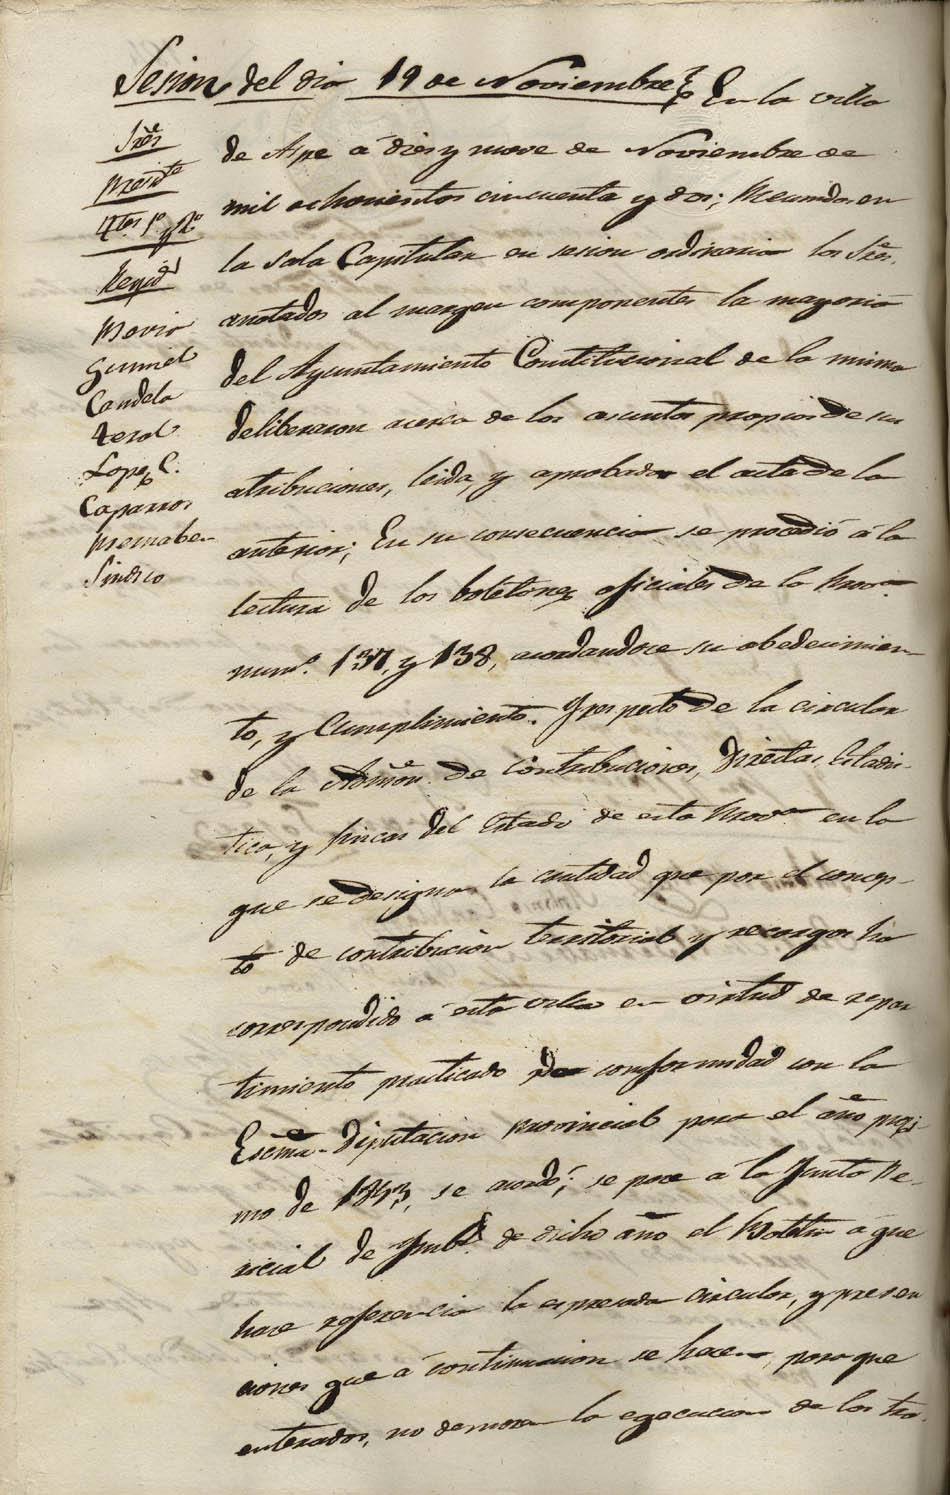 Sesion del dia 19 de Noviembre } En la villa
Sres
Presidte
Ttes 1º y 2º
Regids
Gumiel
Candela
Terol
Lopez C.
Caparros
Mernabeu
Sindico
de Aspe á diez y nueve de Noviembre de
mil ochocientos cincuenta y dos; Reunidos en
la sala Capitular en sesion ordinaria los Sres.
anotados al margen componentes la mayoria
del Ayuntamiento Constitucional de la misma
deliberaron acerca de los asuntos propios de su
atribuciones, leida, y aprobada el acta de la
anterior; En su consecuencia se procedió á la
lectura de los boletines oficiales de la Prova
nums. 137, y 138, acordandose su obedecimien-
to, y Cumplimiento. Y respecto de la circular
de la Admon. de Contribuciones, Directas, Estadis-
tica, y fincas del Estado de esta Prova en la
que se designa la cantidad que por el concep-
to de contribucion territorial y recargos ha
correspondido á esta villa en virtud de repar
timiento practicado de conformidad con la
Escma. Diputacion provincial para el año proxi-
mo de 1853, se acordó; se pase á la Junta Pe-
ricial de Ymbl. de dicho año el Boletin á que
hace referencia la espresada circular, y preven
ciones que á continuacion se hacen, para que
enterados, no demoren la egecucion de los tra-